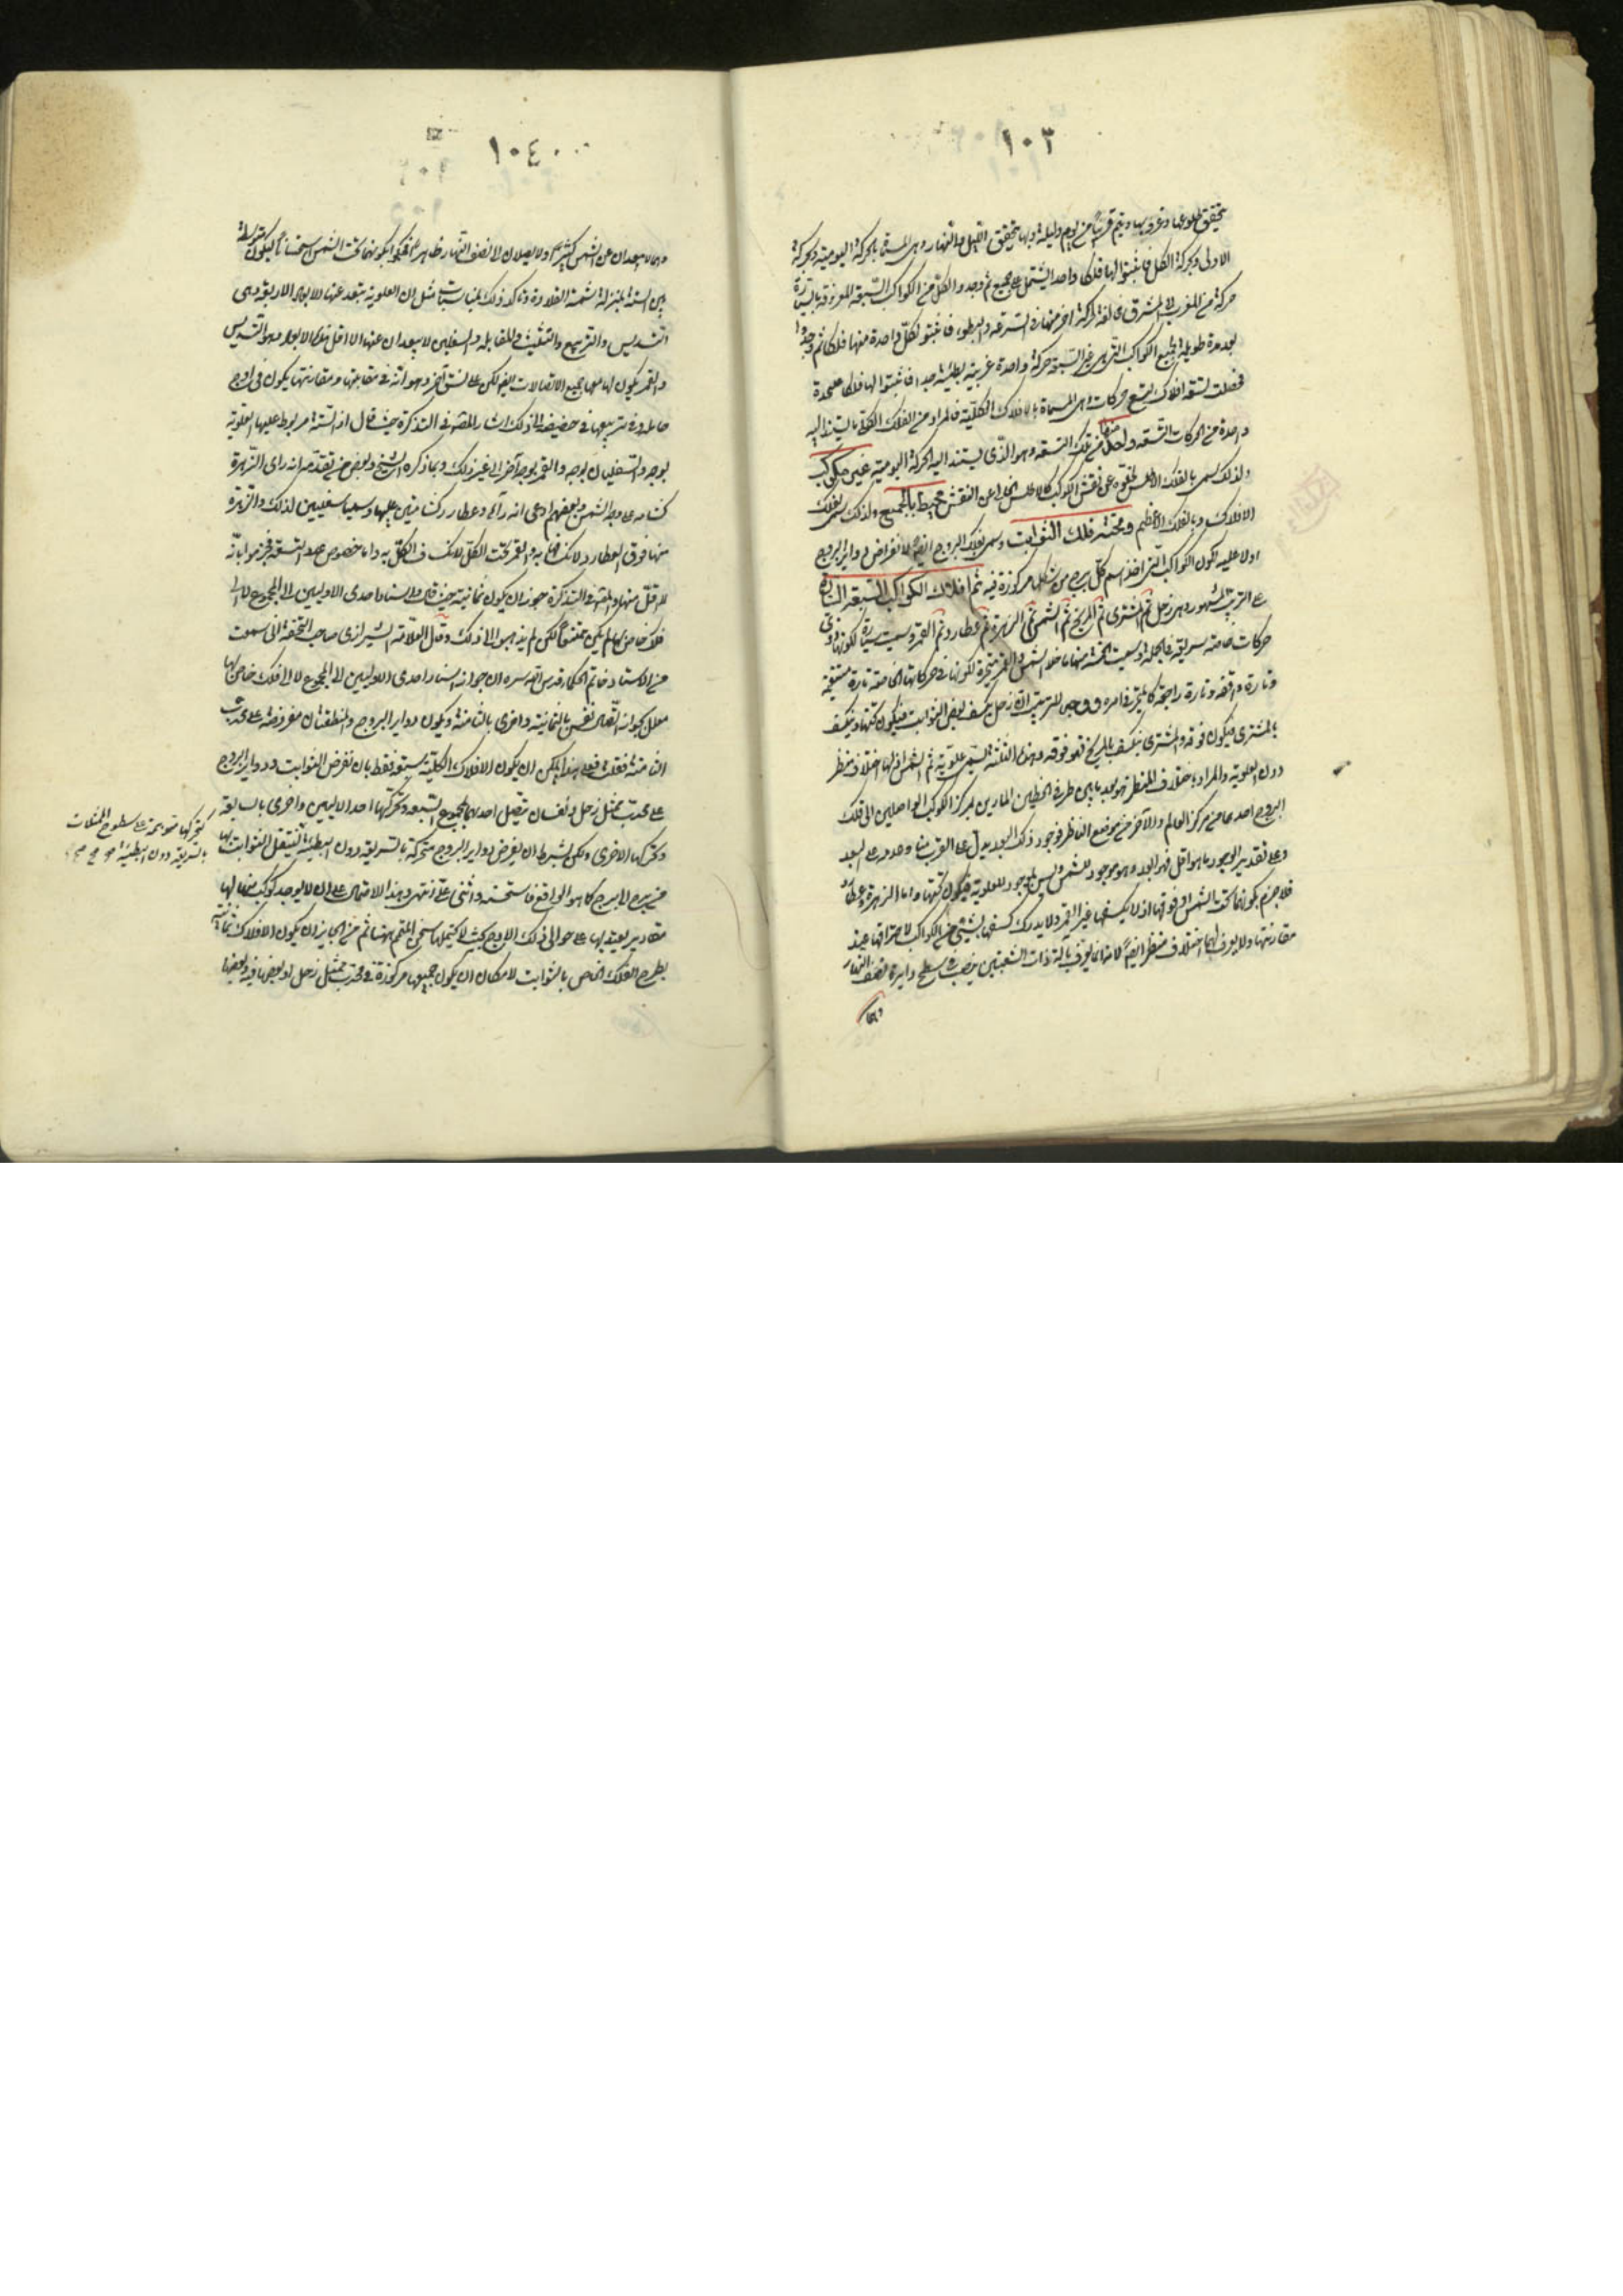 ١٠٣
يتحقق طلوعها وغروبها ويتم قريبا من يوم وليلة وبها يتحقق الليل والنهار وهى المسماة بالحركة اليومية وبحركة
الاولى وبحركة الكل فاثبتوا لها فلكا واحدا يشتمل على جميع ثم وجدوا لكل من الكواكب السبعة المعروفة بالسيارة
حركة من المغرب الى المشرق مخالفة لحركة اخر منها فى السرعة والبطوء فاثبتوا لكل واحدة منها فلكا ثم وجدوا
بعد مدة طويلة لجميع الكواكب التى هى غير السبعة حركة واحدة غربية بطيئة جدا فاثبتوا لها فلكا على حدة
فحصلت تسعة افلاك لتسع حركات وهى المسماة بالافلاك الكلية فالمراد من الفلك الكلى ما يستند اليه
واحدة من الحركات التسعة واحد منها من تلك التسعة وهو الذى يستند اليه الحركة اليومية غير مكوكب
ولذلك سمى بالفلك الاطلس لخلوه عن نقش الكواكب كالاطلس الخالى عن النقش محيط بالجميع ولذلك سمى بفلك
الافلاك وبالفلك الاعظم وتحته فلك الثوابت وسمى بفلك البروج ايضا لانفراض دواير البروج
اولا عليه لكون الكواكب التى اخذ اسم كل برج من شكلها مركوزة فيه ثم افلاك الكواكب السبعة السيارة
على الترتيب المشهور وهى زحل ثم المشترى ثم المريخ ثم الشمس ثم الزهرة ثم عطارد ثم القمر وسميت سيارة لكونها ذوى
حركات خاصة سريعة فى الجملة وسميت الخمسة منها ما خلا الشمس والقمر متحيرة لكونها فى حركاتها الخاصة تارة مستقيمة
وتارة واقفة وتارة راجعة كالمتحير فى امره ووجه الترتيب ان زحل يكسف بعض الثوابت فيكون تحتها وينكسف
بالمشترى فيكون فوقه والمشترى ينكسف بالمريخ فهو فوقه وهذه الثلثة تسمى علوية ثم الشمس اذ لها اختلاف منظر
دون العلوية والمراد باختلاف المنظر هو بعد ما بين طرفى الخطين المارين بمركز الكوكب الواصلين الى فلك
البروج احدهما من مركز العالم والآخر من موضع الناظر فوجود ذلك البعد يدل على القرب منا وعدمه على البعد
وعلى تقدير الوجود ما هو اقل فهو ابعد وهو موجود للشمس وليس بموجود للعلوية فيكون تحتها واما الزهرة وعطارد
فلا جزم بكونهما تحت الشمس او فوقها اذ لا يكسفها غير القمر ولا يدرك كسفها لشىء من الكواكب لاحتراقها عند
مقارنتها ولا يعرف لهما اختلاف منظر ايضا لانه انما يعرف بآلة ذات الشعبتين ينصب فى سطح دايرة نصف النهار
وهما
١٠٤
وهما لا يبعدان عن الشمس كثيرا ولا يصلان الى نصف النهار ظاهرا فحكموا بكونهما تحت الشمس استحسانا ليكون متوسطة
بين الستة بمنزلة شمسة القلادة وتاكد ذلك بمناسبات مثل ان العلوية تبعد عنها الابعاد الاربعة وهى
التسديس والتربيع والتثليث والمقابلة والسفليين لا يبعدان عنها الا اقل تلك الابعاد وهو التسديس
والقمر يكون لها معها جميع الاتصالات ايضا لكن على نسق آخر وهو انه فى مقابلتها ومقارنتها يكون فى اوج
حامله وفى تربيعها فى حضيضه الى ذلك اشار المصنف فى التذكرة حيث قال اذ الستة مربوط عليها العلوية
بوجه والسفليان بوجه والقمر بوجه آخر الى غير ذلك وبما ذكره الشيخ وبعض من تقدمه انه راى الزهرة
كشامة على وجه الشمس وبعضهم ادعى انه رآها وعطارد كشامتين عليها وسميا سفليين لذلك والزهرة
منها فوق العطارد لانكسافها به والقمر تحت الكل لانكساف الكل به واما خصوص عدد التسعة فجزموا بانه
لا اقل منها والمصنف فى التذكرة جوز ان يكون ثمانية حيث قال واسناد احدى الاوليين الى المجموع لا الى
فلك خاص بها لم يكن ممتنعا لكن لم يذهبوا الى ذلك وقال العلامة الشيرازى صاحب التحفة انى سمعت
من الاستاد خاتم الحكماء قدس الله سره ان جواز اسناد احدى الاوليين الى المجموع لا الى فلك خاص بها
معلل بجواز اتصال نفس بالثمانية واخرى بالثامنة ويكون دواير البروج والمنطقتان مفروضة على محدب
الثامنة فقلت فعلى هذا يمكن ان يكون الافلاك الكلية سبعة فقط بان نفرض الثوابت ودواير البروج
على محدب ممثل زحل ونفسان يتصل احدهما بمجموع السبعة وتحركها احدى الاوليين واخرى بالسابعة
وتحركها الاخرى ولكن بشرط ان يفرض دواير البروج متحركة بالسريعة دون البطيئة لتنتقل الثوابت بها
من برج الى برج كما هو الواقع فاستحسنه واثنى على انتهى وهذا الاحتمال على ان لا يوجد كوكب منها لها
مقادير يعتد بها على حوالى ذلك الاوج بحيث لا يحتملها سخن المتمم هنا ثم من الجايز ان يكون الافلاك ثمانية
بطرح الفلك الخاص بالثوابت لامكان ان يكون جميعها مركوزة فى محدب ممثل زحل او بعضها فيه وبعضها
بتحركها متوهمة على سطوح الممثلات
بالسريعة دون البطيئة